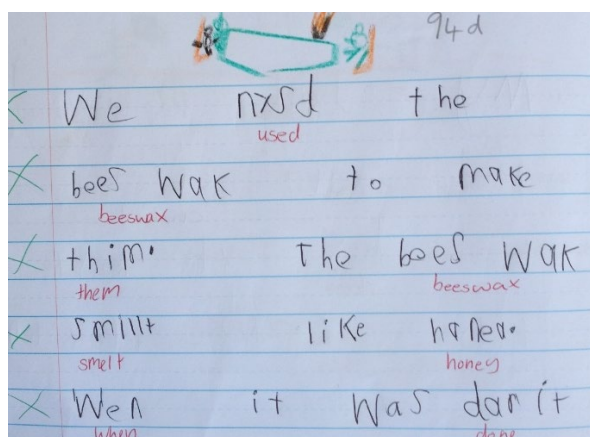 94d
We nxsd the
used
bees wak to make
beeswax
thim. The bees wak
them beeswax
smillt like honea.
smelt honey
Wen it was dar it
when done